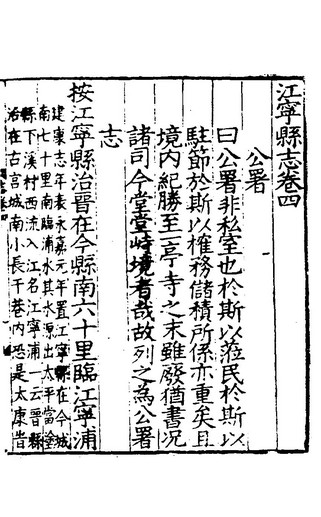 江寧縣志卷四
公署
曰公署非私室也於斯以蒞民於斯以
駐節於斯以榷務儲積所係亦重矣且
境內紀勝至一亭寺之末雖廢猶書况
諸司今堂堂峙境者哉故列之為公署
志
按江寧縣治晉在今縣南六十里臨江寧浦
建康志年表永嘉元年置江寧縣在今城
南七十里南臨浦水其水源出太平當塗
縣下溪村西流入江名江寧浦一云晉縣
治在古宮城南小長干巷內恐是太康昔